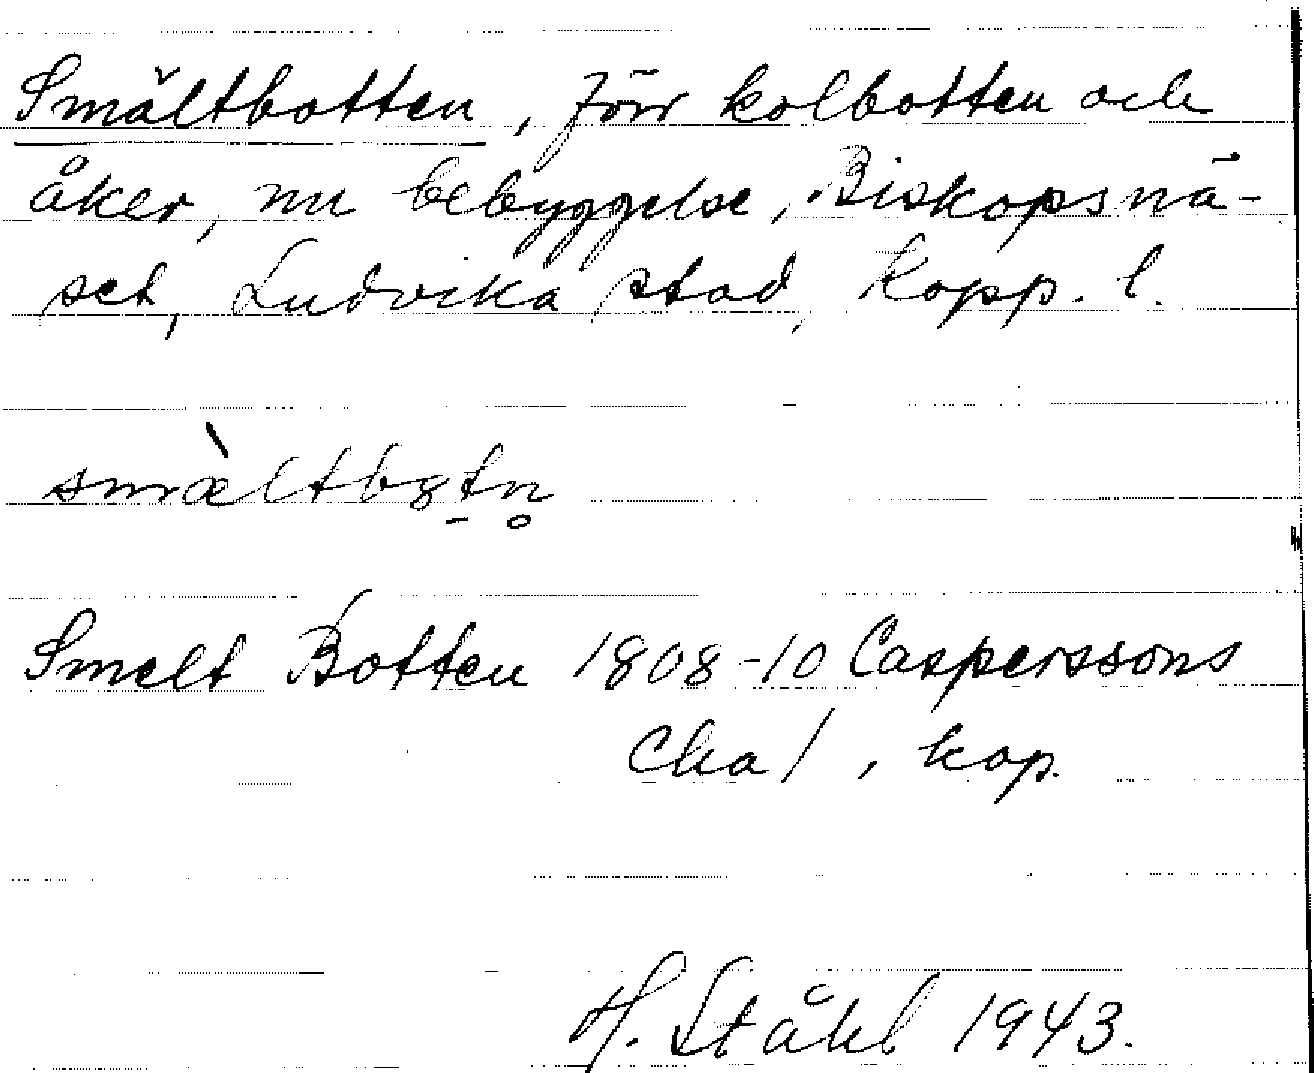 Smältbotten, förr kolbotten och
åker, nu bebyggelse, Biskopsnä-
set, Ludvika stad, Kopp. l.
smæ̀ltbȣt̠n̥
Smelt Botten 1808-10 Casperssons
Cha/, kop.
H. Ståhl 1943.